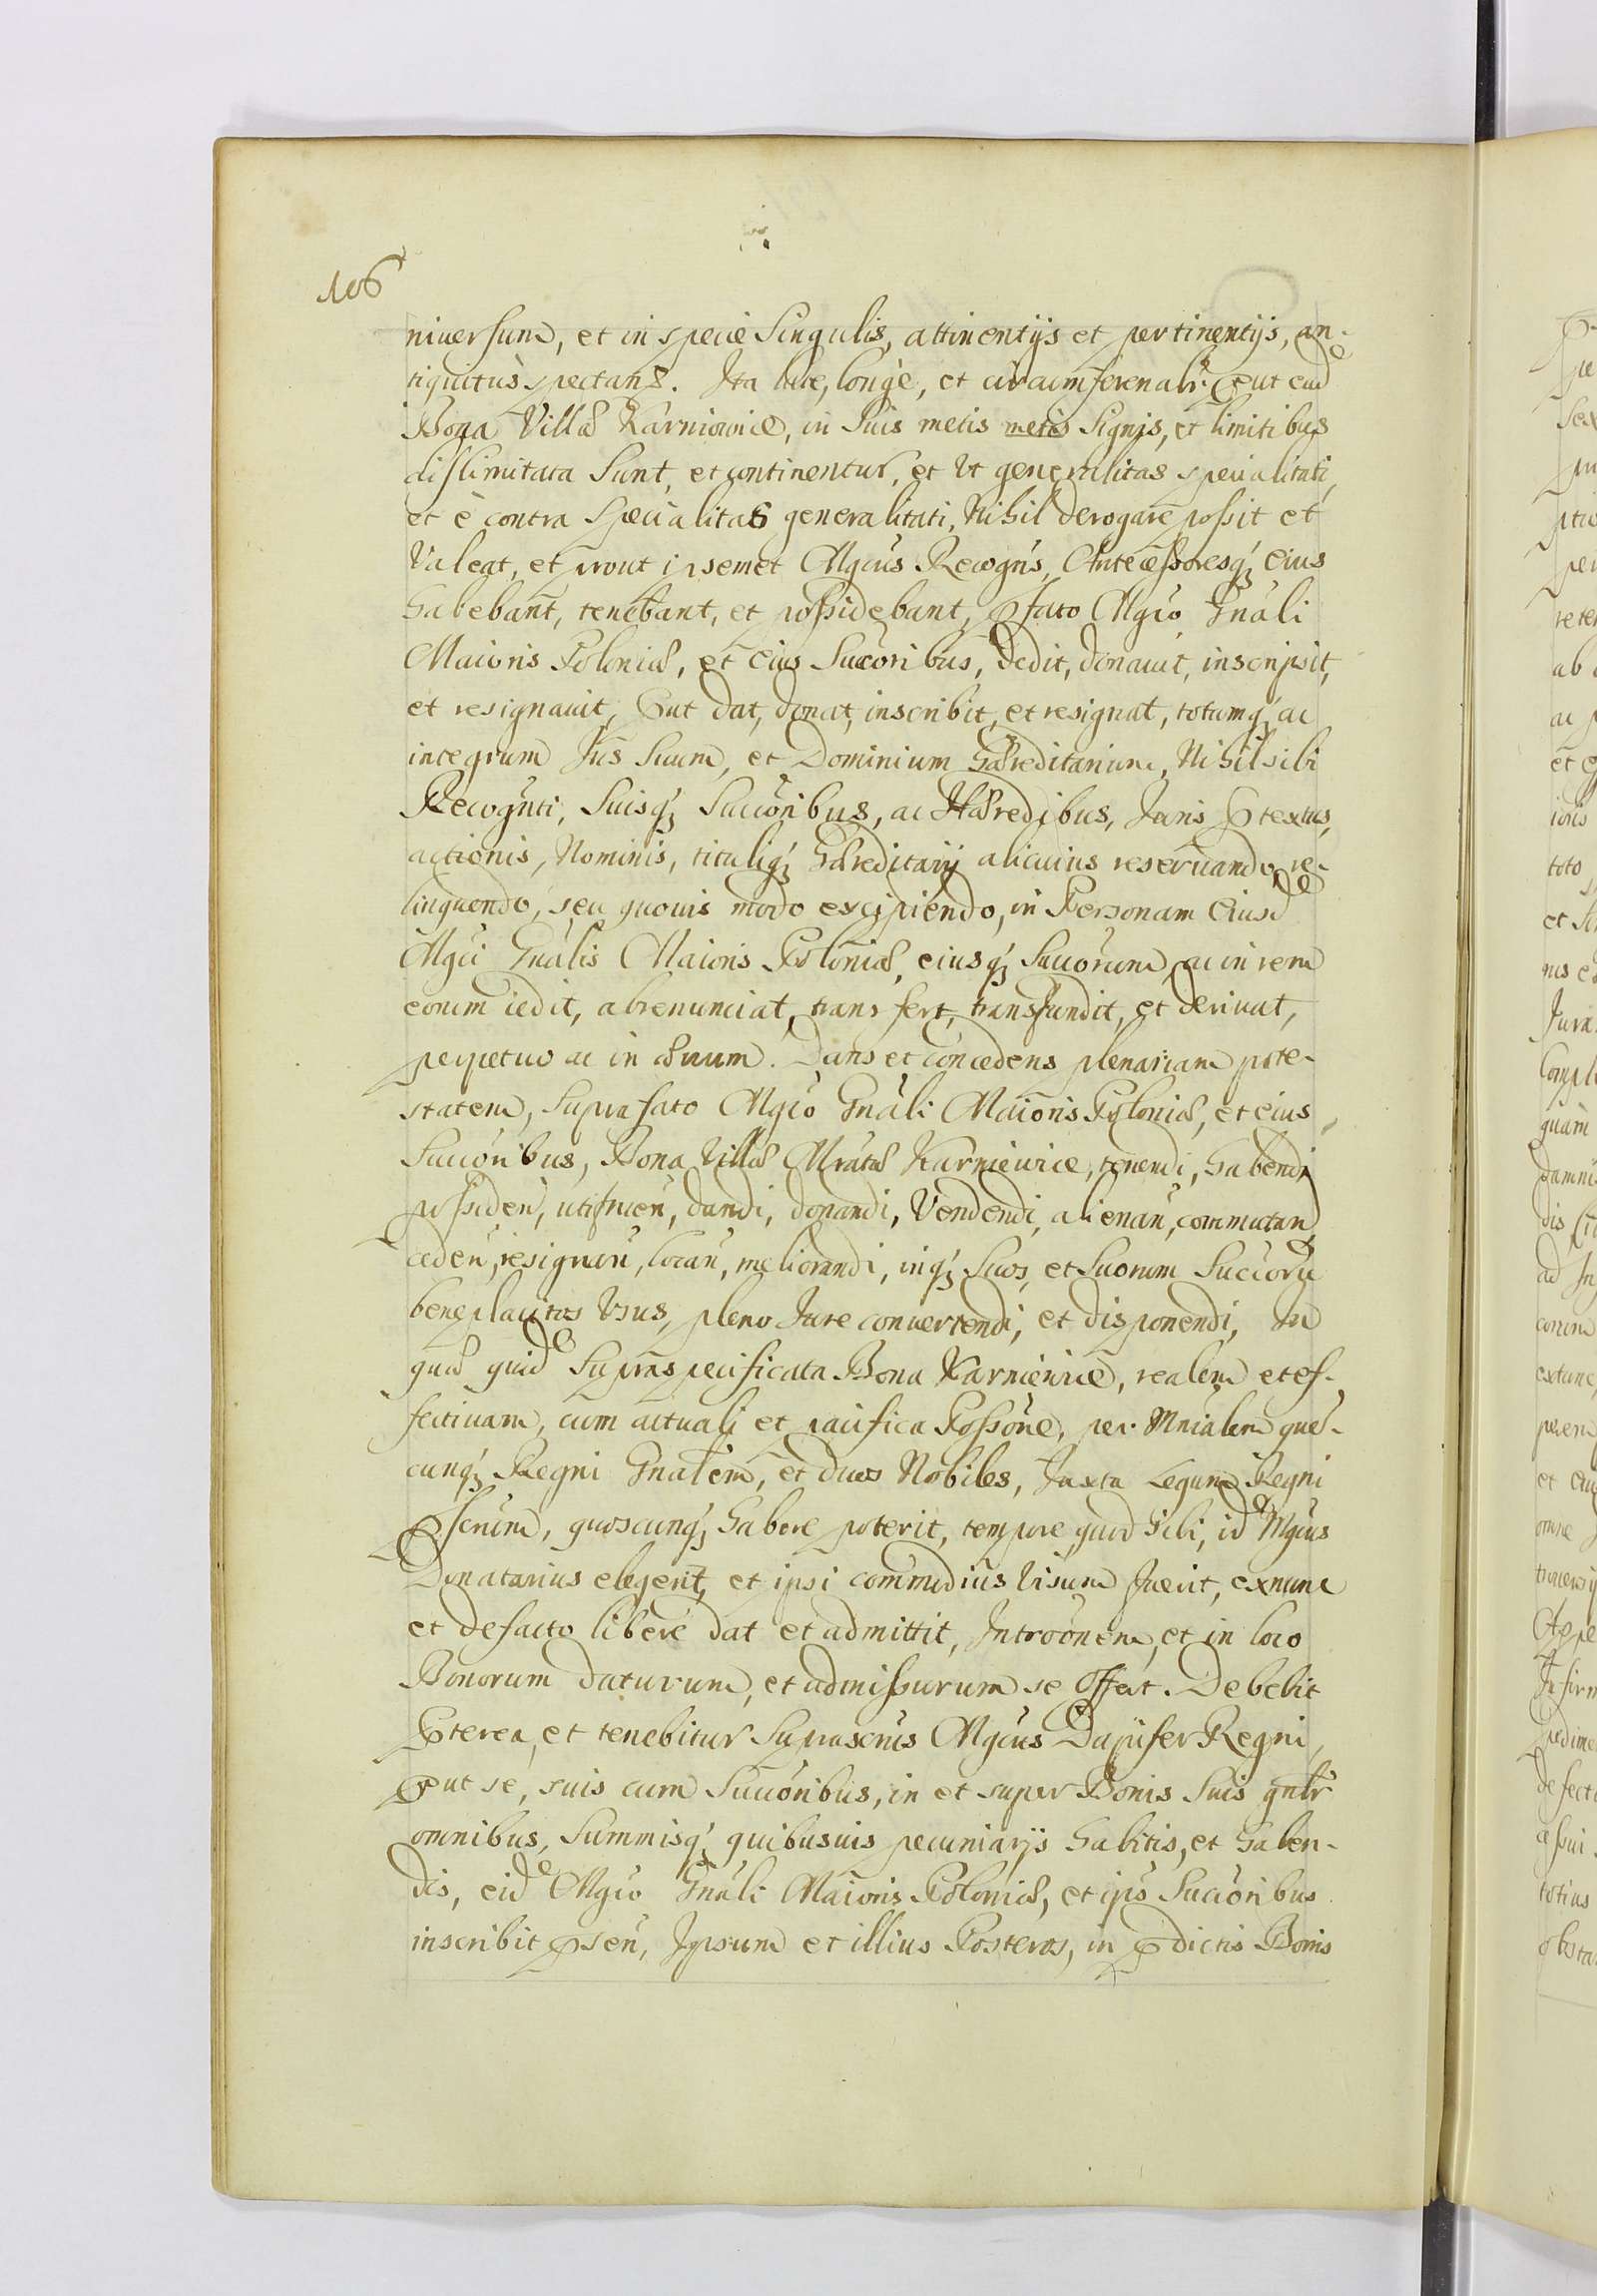 106
niversum, et in specie Singulis, attinentijs et pertinentijs, an-
tiquitùs spectans. Ita latè, longè, et circumferenalr: prout eadē
Bona Villæ Karniowice, in Suis metis metis Signis, et limitibus
dislimitata Sunt, et continentur, et Ut generalitas specialitati,
et è contra Specialitas generalitati, Nihil derogare possit et
Valeat, et prout ipsemet Mgcus Recogns, Antecessoresq; Eius
habebant, tenebant, et possidebant, præfato Mgco Gnali
Maioris Poloniæ, et Eius Succoribus, dedit, donauit, inscripsit,
et resignauit, prout dat, donat, inscribit, et resignat, totumq; ac
integrum Jus Suum, et Dominium Hæreditarium, Nihil sibi
Recognti, Suisq; Succoribus, ac Hæredibus, Juris prætextus,
actionis, Nominis, tituliq; Hæreditarij alicuius reseruando, re-
linquendo, seu quouis modo excipiendo, in Personam Eiusdē
Mgci Gnalis Maioris Poloniæ, eiusq; Succorum, ac in rem
eorum cedit, abrenunciat, transfert, transfundit, et deriuat,
perpetuo ac in æuum. Dans et concedens plenariam pote-
statem, suprafato Mgco Gnali Maioris Poloniæ, et eius
Succoribus, Bona Villæ Mratæ Karniewice, tenendi, habendi
possiden, utifruen, dandi, donandi, Vendendi, alienan, commutan,
ceden, resignan, locan, meliorandi, inq; Suos, et Suorum Succorū
beneplacitos Usus, pleno Jure convertendi, et disponendi, In
quæ quidē Supraspecificata Bona Karniewice, realem et ef-
fectivam, cum actuali et pacifica Possone, per Mnialem quē-
cunq; Regni Gnalem, et duos Nobiles, Juxta Legum Regni
præscrium, quoscunq; habere poterit, tempore, quod sibi, idē Mgcus
Donatarius elegerit, et ipsi commodius Visum fuerit, exnunc
et defacto liberè dat et admittit, Introonem, et in loco
Bonorum daturum, et admissurum se offert. Debebit
præterea, et tenebitur Suprascrus Mgcus Dapifer Regni,
prout se, suis cum Succoribus, in et super Bonis Suis gnlr
omnibus, Summisq; quibusuis pecuniarijs habitis, et haben-
dis, eidē Mgco Gnali Maioris Poloniæ, et ips Succoribus
inscribit præsen, Ipsum et illius Posteros, in prædictis Bonis